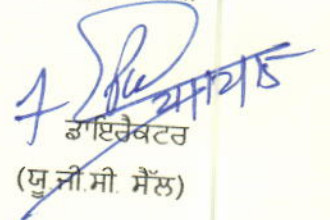 ਡਾਇਰੈਕਟਰ
(ਯੂ.ਜੀ.ਸੀ. ਸੈੱਲ)